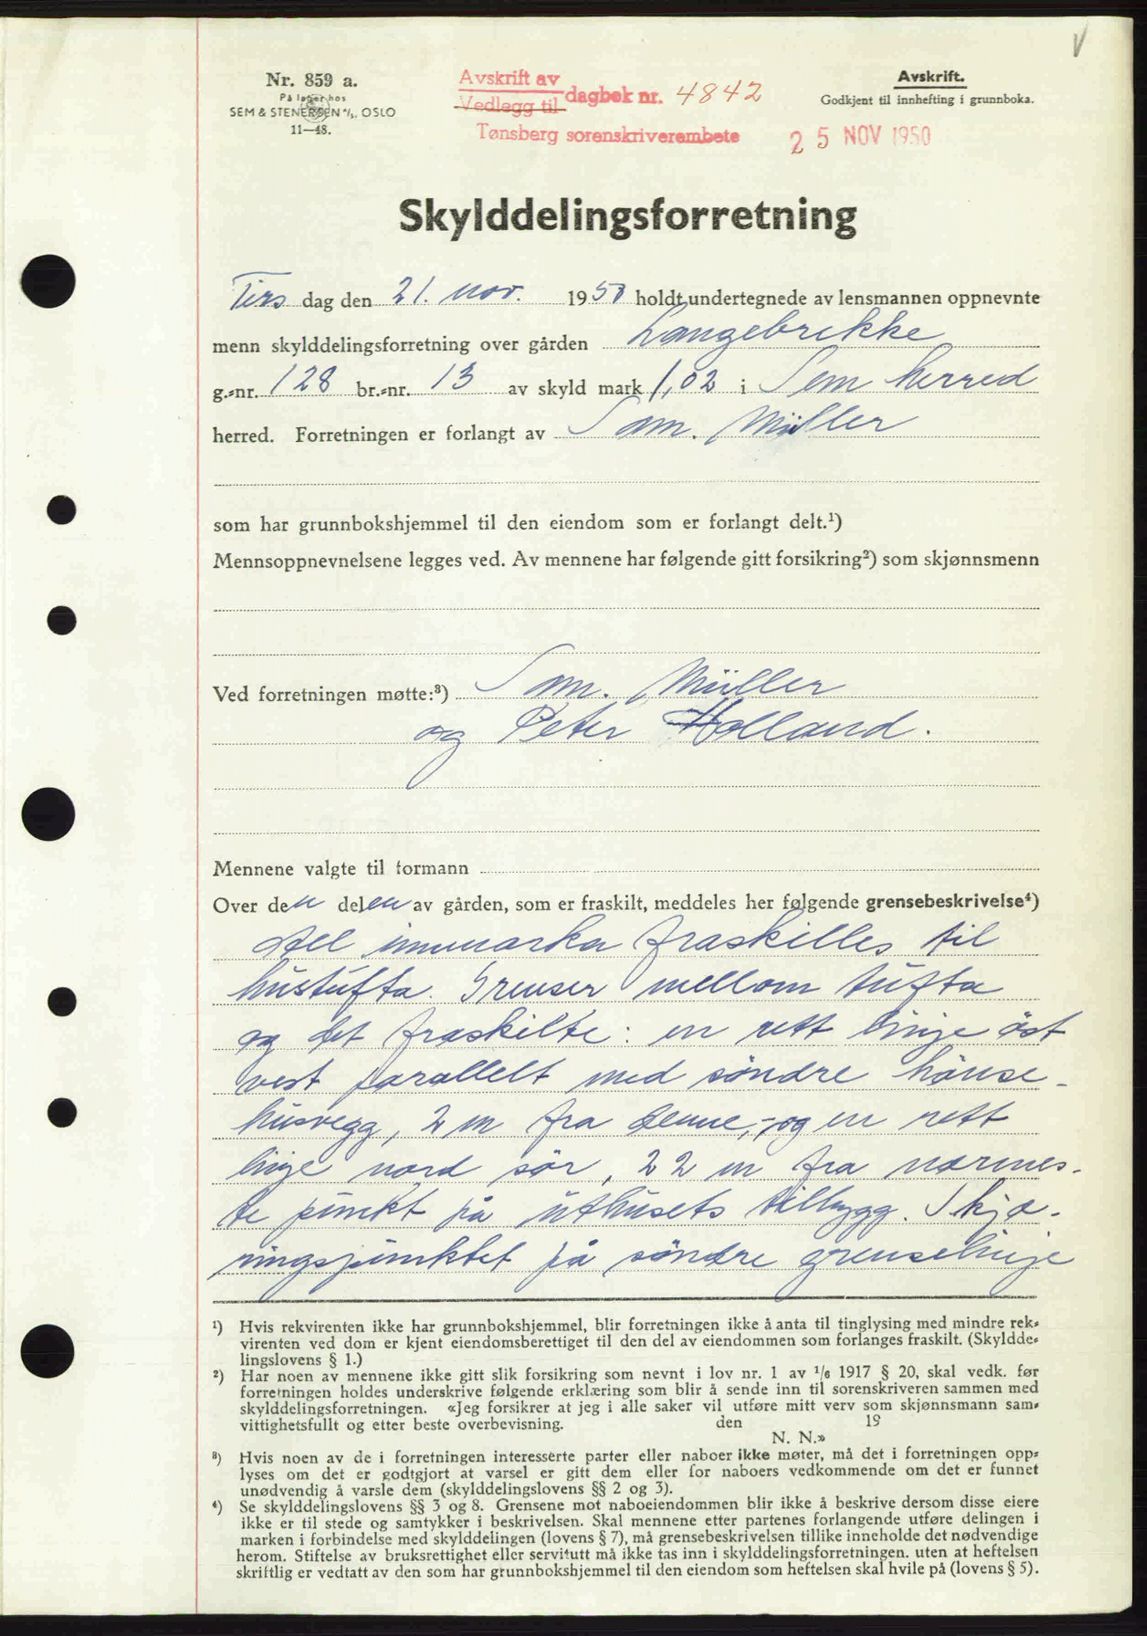 Nr. 859 a.
På lager hos
SEM & STENERSEN A/S, OSLO
11—48.
Avskrift av
Vedlegg til dagbok nr. 4842
Tønsberg sorenskriverembete
Avskrift.
Godkjent til innhefting i grunnboka.
25 NOV 1950
Skylddelingsforretning
Tirs dag den 21. nov. 1950 holdt undertegnede av lensmannen oppnevnte
menn skylddelingsforretning over gården Langebrekke
g.-nr. 128 br.-nr. 13 av skyld mark 1,02 i Sem herred
herred. Forretningen er forlangt av Sam. Müller
som har grunnbokshjemmel til den eiendom som er forlangt delt.¹)
Mennsoppnevnelsene legges ved. Av mennene har følgende gitt forsikring²) som skjønnsmenn
Ved forretningen møtte:³) Sam. Müller
og Peter Holland.
Mennene valgte til formann
Over den delen av gården, som er fraskilt, meddeles her følgende grensebeskrivelse⁴)
Del innmarka fraskilles til
hustufta. Grenser mellom tufta
og det fraskilte: en rett linje öst
vest parallelt med söndre hönse-
husvegg, 2 m fra denne, - og en rett
linje nord sör, 22 m fra nærmes-
te punkt på uthusets tilbygg. Skjæ-
ringspunktet på söndre grenselinje
¹) Hvis rekvirenten ikke har grunnbokshjemmel, blir forretningen ikke å anta til tinglysing med mindre rek-
virenten ved dom er kjent eiendomsberettiget til den del av eiendommen som forlanges fraskilt. (Skyldde-
lingslovens § 1.)
²) Har noen av mennene ikke gitt slik forsikring som nevnt i lov nr. 1 av 1/6 1917 § 20, skal vedk. før
forretningen holdes underskrive følgende erklæring som blir å sende inn til sorenskriveren sammen med
skylddelingsforretningen. «Jeg forsikrer at jeg i alle saker vil utføre mitt verv som skjønnsmann sam-
vittighetsfullt og etter beste overbevisning. den 19
N. N.»
³) Hvis noen av de i forretningen interesserte parter eller naboer ikke møter, må det i forretningen opp-
lyses om det er godtgjort at varsel er gitt dem eller for naboers vedkommende om det er funnet
unødvendig å varsle dem (skylddelingslovens §§ 2 og 3).
⁴) Se skylddelingslovens §§ 3 og 8. Grensene mot naboeiendommen blir ikke å beskrive dersom disse eiere
ikke er til stede og samtykker i beskrivelsen. Skal mennene etter partenes forlangende utføre delingen i
marken i forbindelse med skylddelingen (lovens § 7), må grensebeskrivelsen tillike inneholde det nødvendige
herom. Stiftelse av bruksrettighet eller servitutt må ikke tas inn i skylddelingsforretningen. uten at heftelsen
skriftlig er vedtatt av den som har grunnbokshjemmel til den eiendom som heftelsen skal hvile på (lovens § 5).